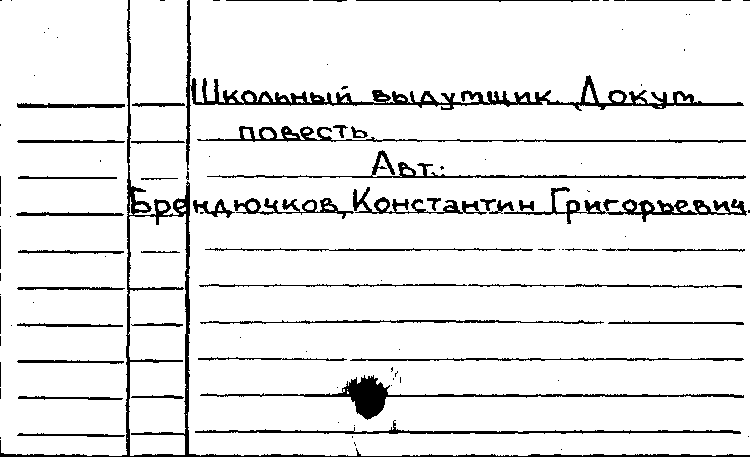 Школьный выдумщик. Докум.
повесть.
Авт.:
Брендючков, Константин Григорьевич.